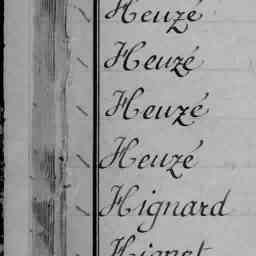 Heuzé
Heuzé
Heuzé
Heuzé
Hignard
Hignet